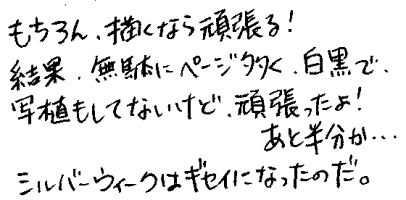 もちろん、描くなら頑張る!
結果、無駄にページ多く、白黒で、
写植もしてないけど、頑張ったよ!
あと半分か…
シルバーウィークはギセイになったのだ。